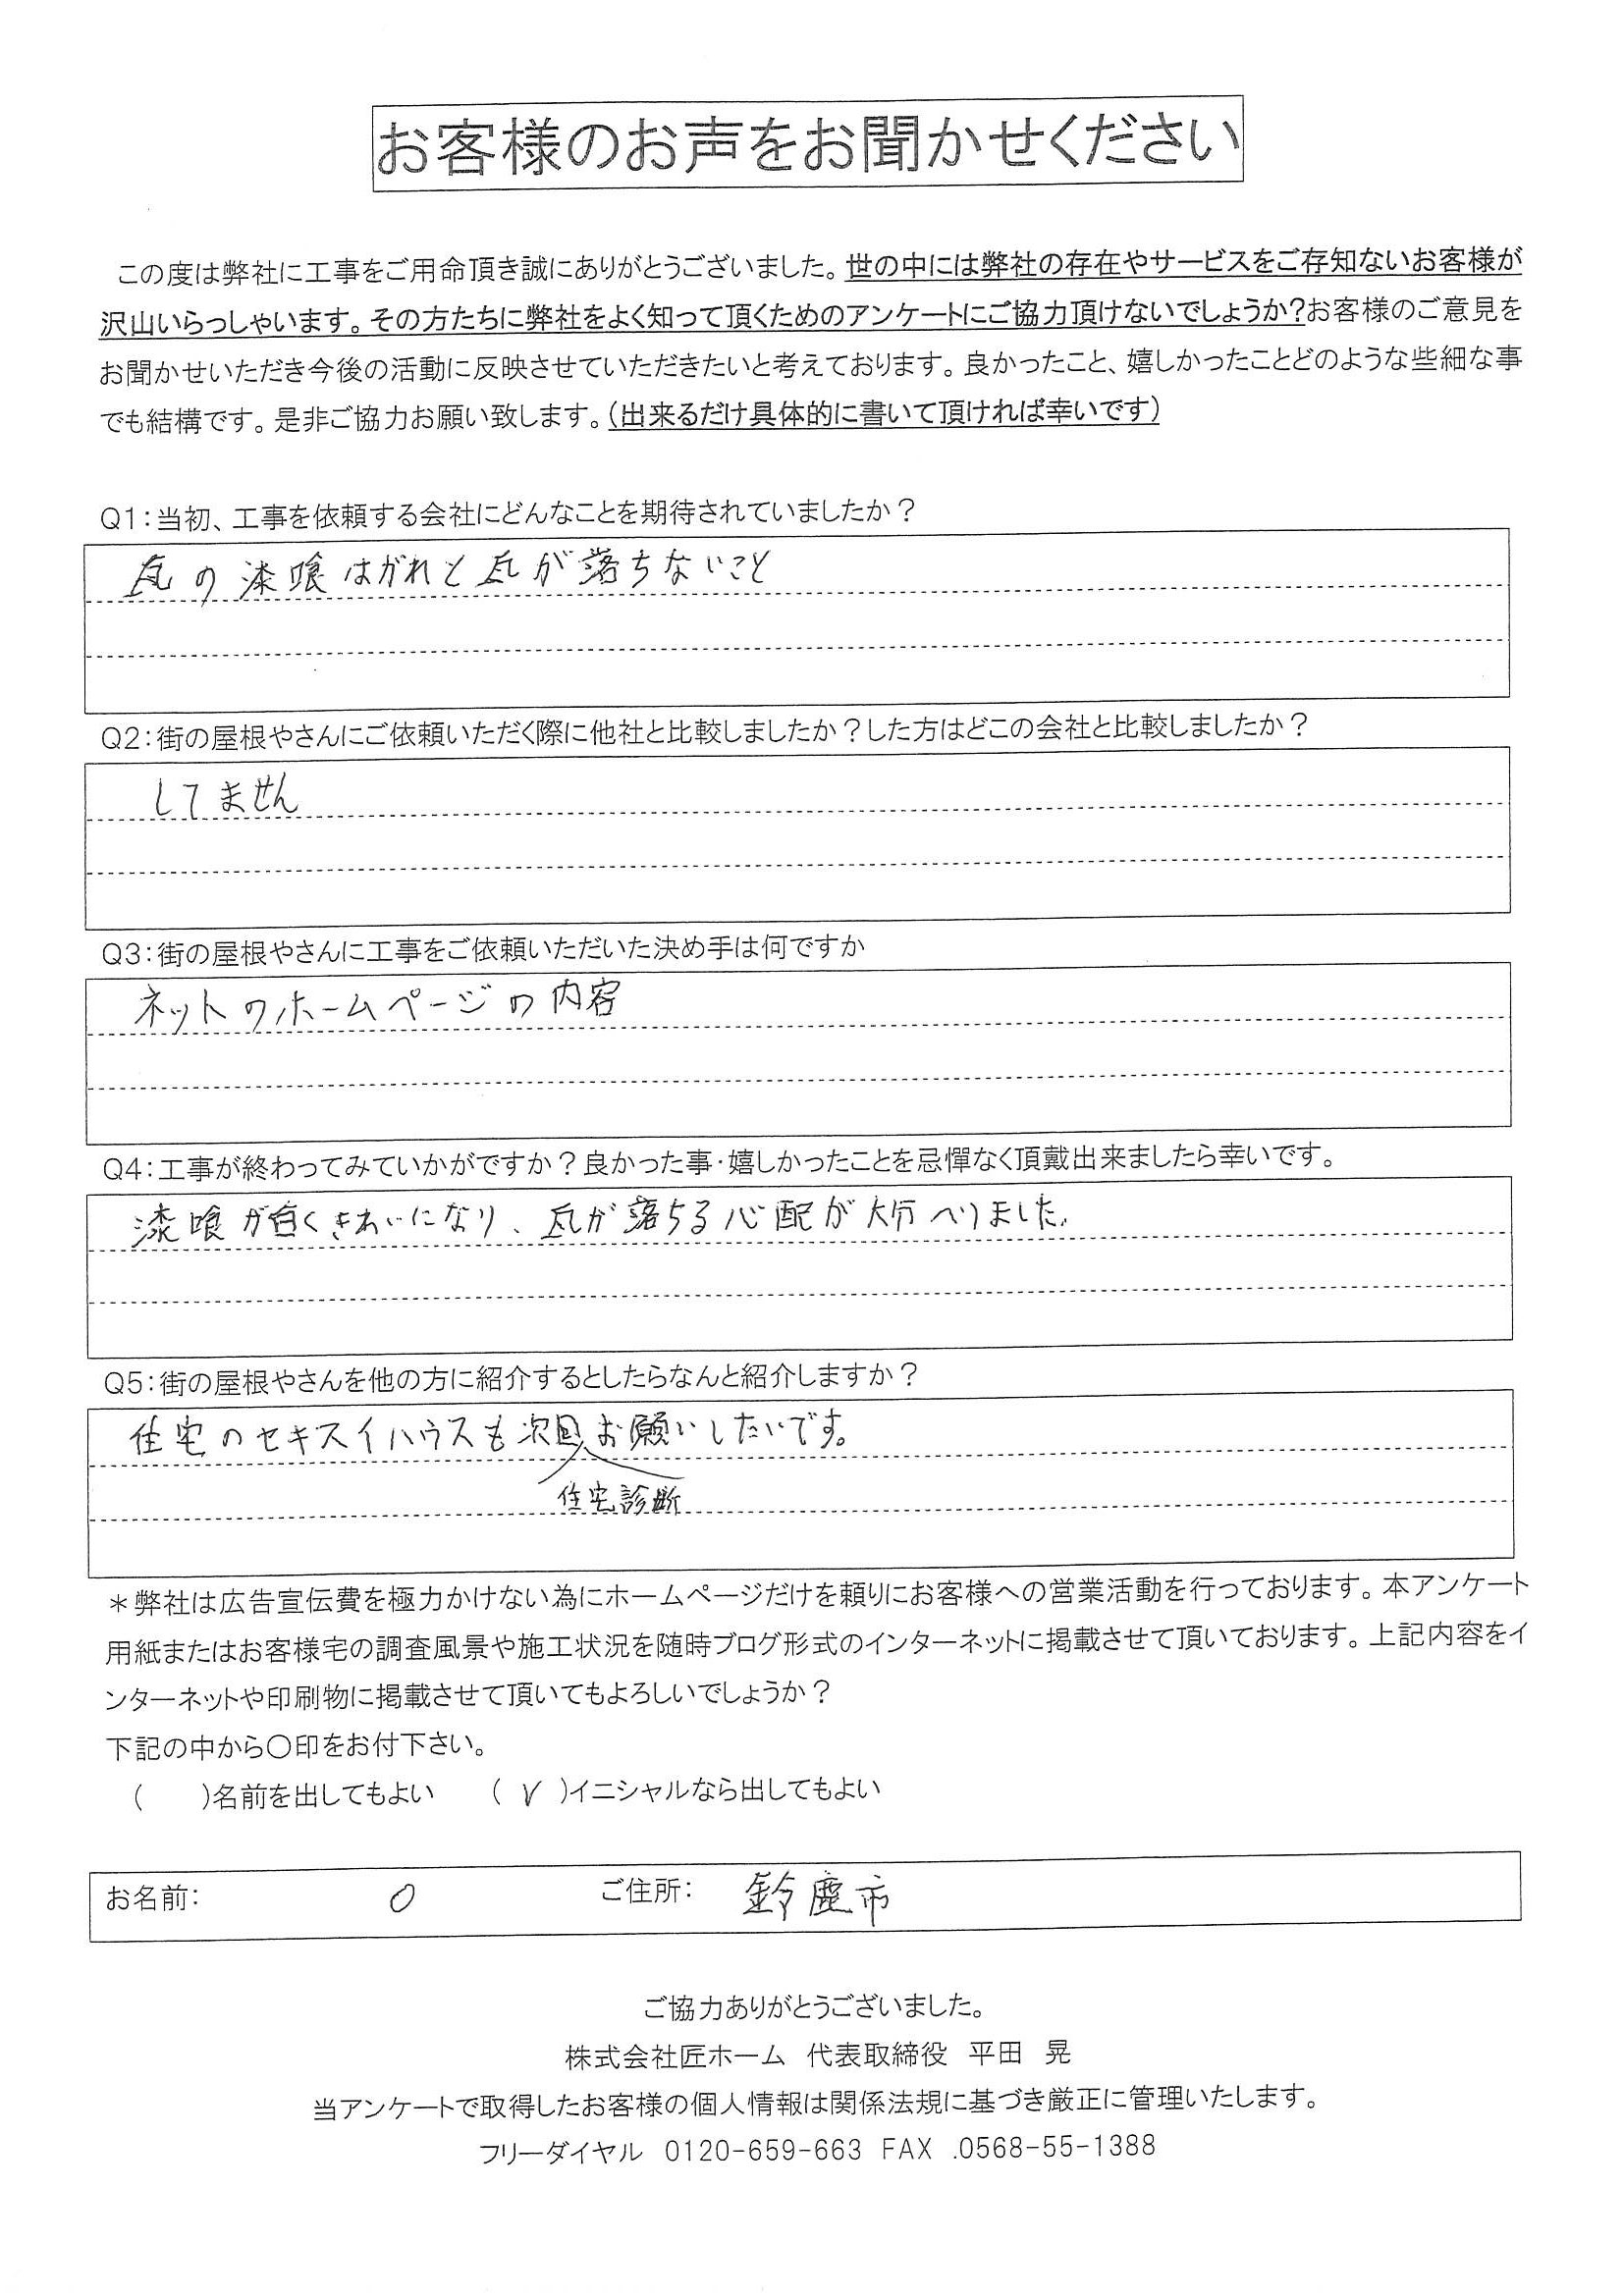 お客様のお声をお聞かせください
この度は弊社に工事をご用命頂き誠にありがとうございました。世の中には弊社の存在やサービスをご存知ないお客様が
沢山いらっしゃいます。その方たちに弊社をよく知って頂くためのアンケートにご協力頂けないでしょうか?お客様のご意見を
お聞かせいただき今後の活動に反映させていただきたいと考えております。良かったこと、嬉しかったことどのような些細な事
でも結構です。是非ご協力お願い致します。(出来るだけ具体的に書いて頂ければ幸いです)
Q1:当初、工事を依頼する会社にどんなことを期待されていましたか?
瓦の漆喰はがれと瓦が落ちないこと
Q2:街の屋根やさんにご依頼いただく際に他社と比較しましたか?した方はどこの会社と比較しましたか?
してません
Q3:街の屋根やさんに工事をご依頼いただいた決め手は何ですか
ネットのホームページの内容
Q4:工事が終わってみていかがですか?良かった事・嬉しかったことを忌憚なく頂戴出来ましたら幸いです。
漆喰が白くきれいになり、瓦が落ちる心配が大分へりました。
Q5:街の屋根やさんを他の方に紹介するとしたらなんと紹介しますか?
住宅のセキスイハウスも次回お願いしたいです。
住宅診断
*弊社は広告宣伝費を極力かけない為にホームページだけを頼りにお客様への営業活動を行っております。本アンケート
用紙またはお客様宅の調査風景や施工状況を随時ブログ形式のインターネットに掲載させて頂いております。上記内容をイ
ンターネットや印刷物に掲載させて頂いてもよろしいでしょうか?
下記の中から〇印をお付下さい。
( )名前を出してもよい ( ✓ )イニシャルなら出してもよい
お名前: O ご住所: 鈴鹿市
ご協力ありがとうございました。
株式会社匠ホーム 代表取締役 平田 晃
当アンケートで取得したお客様の個人情報は関係法規に基づき厳正に管理いたします。
フリーダイヤル 0120-659-663 FAX .0568-55-1388